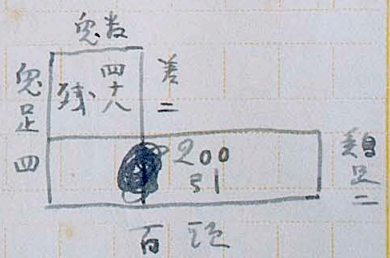 兎数
兎足四
残
四十八
差二
200
引
鶏足二
百頭